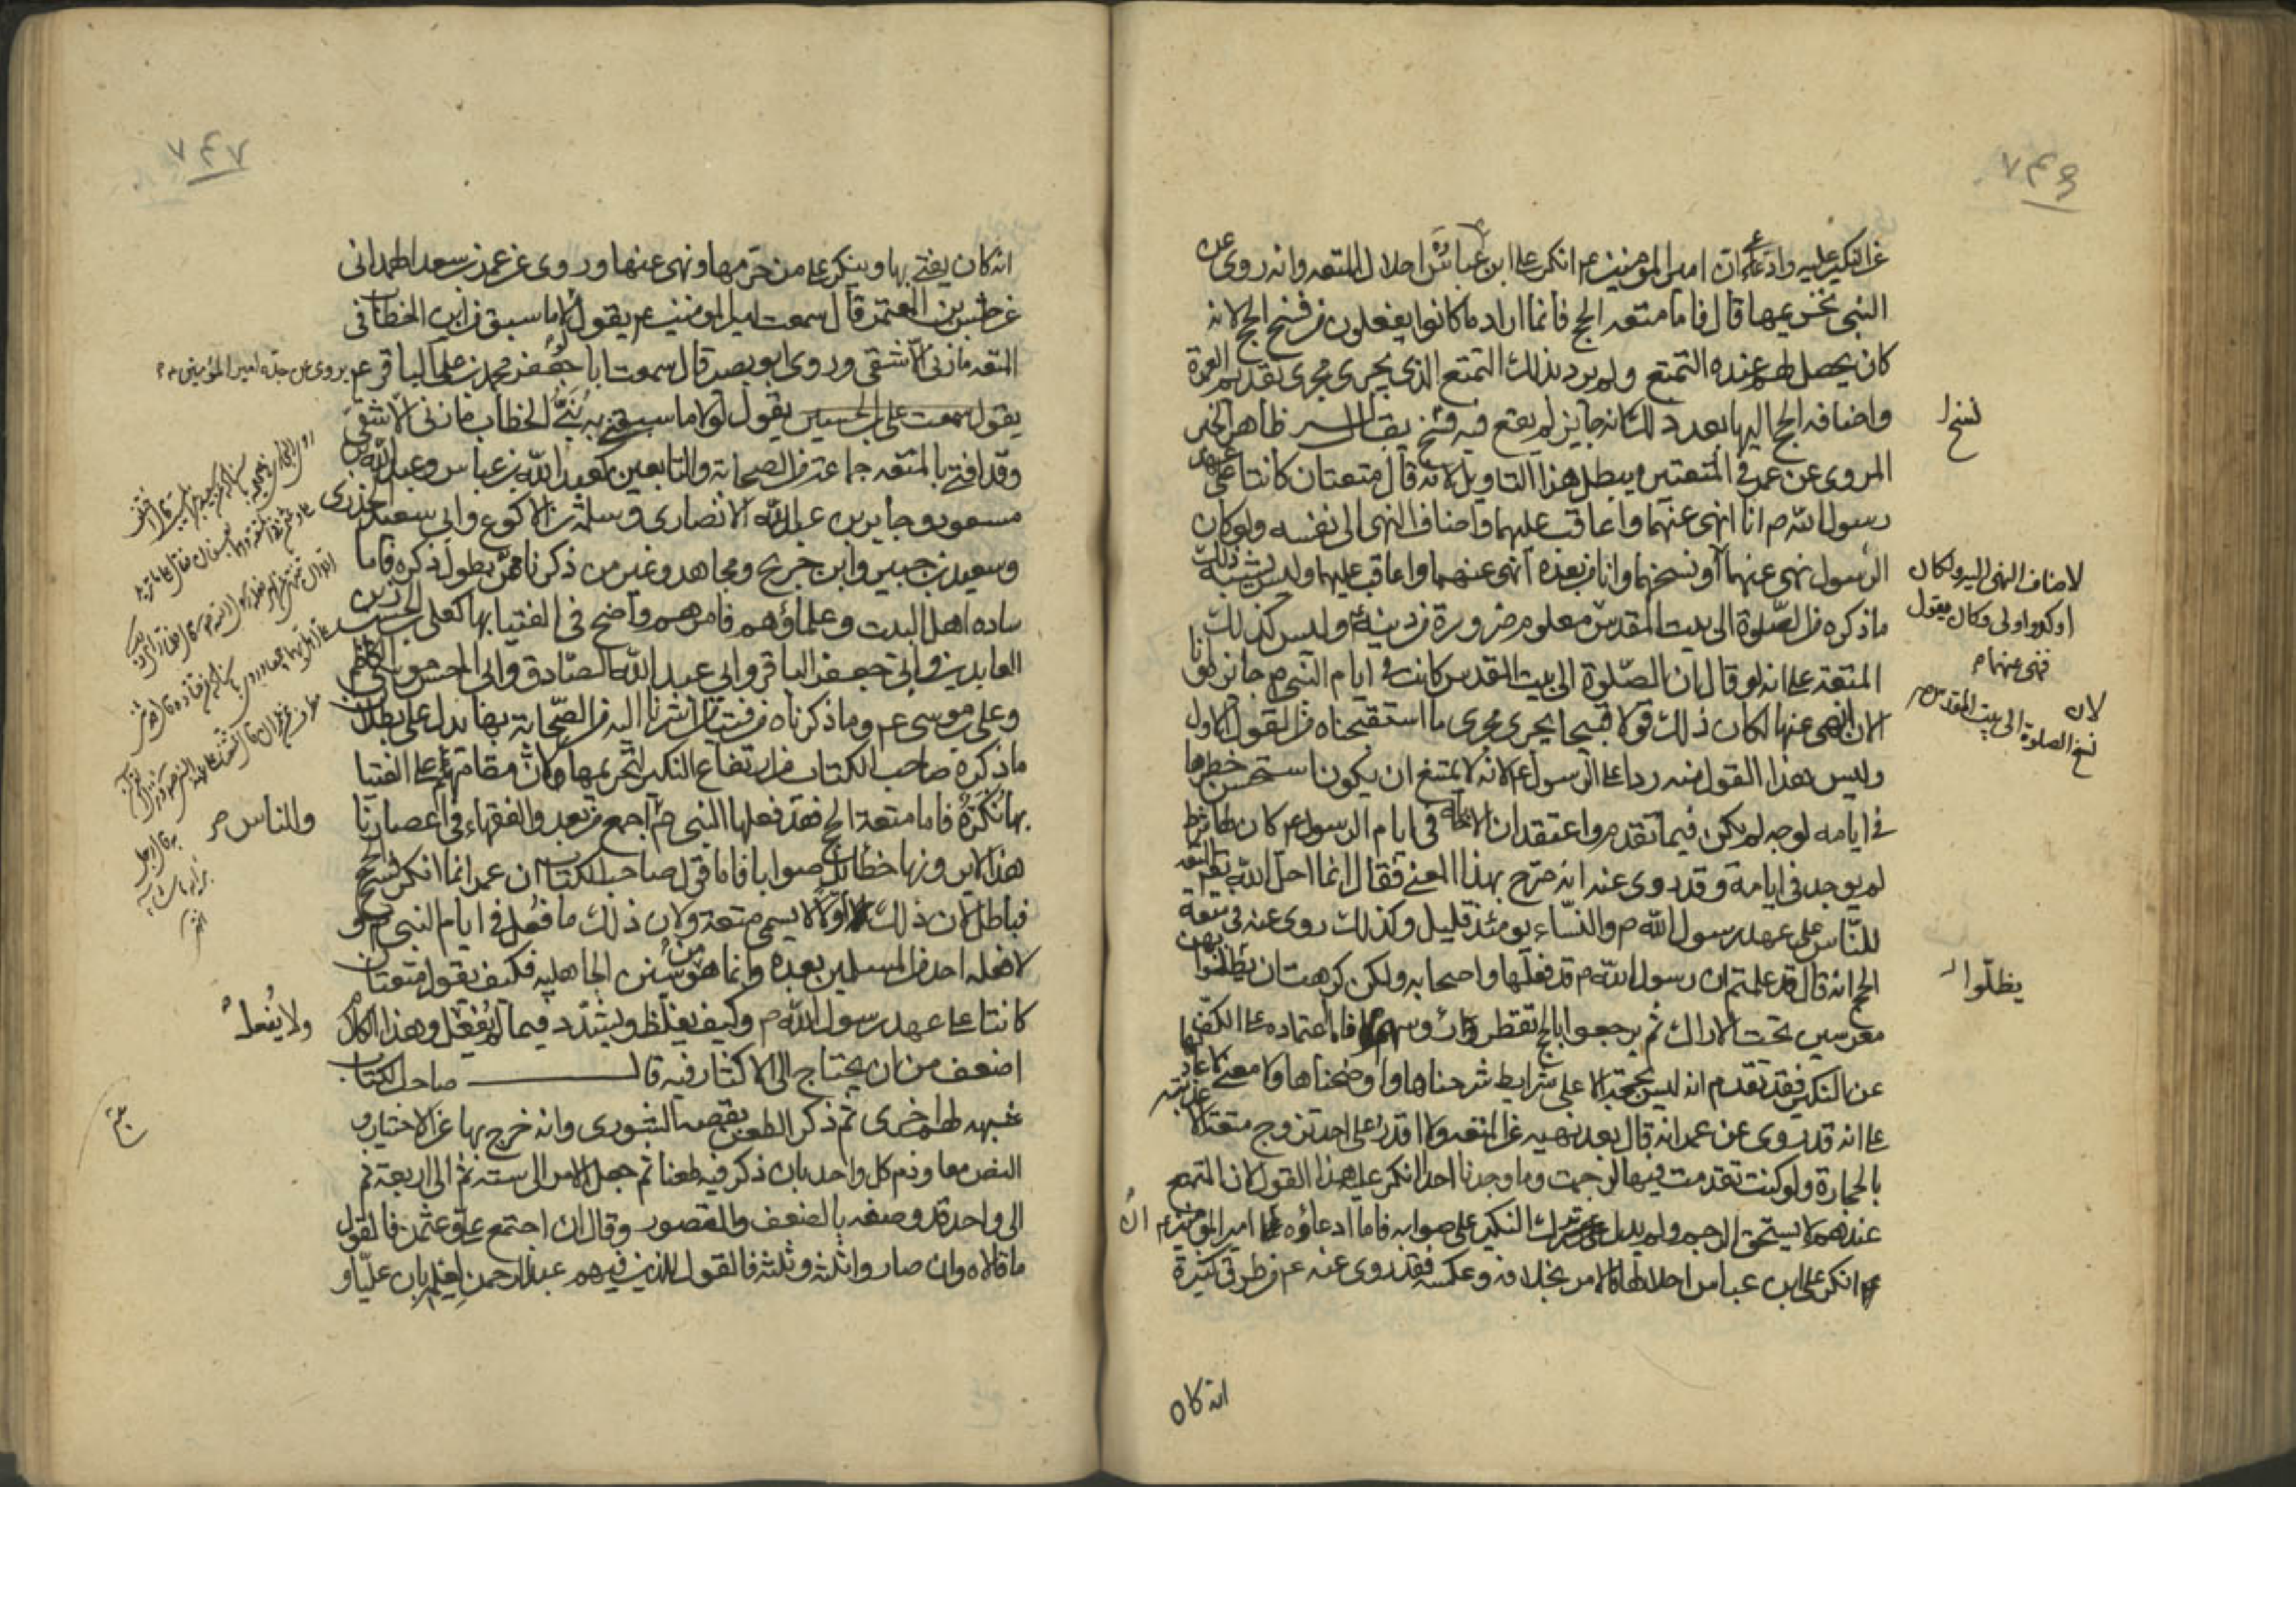 ٧٤٦
عن النكير عليه وادعى ان امير المؤمنين ع انكر على ابن عباس احلال المتعة وانه روى عن
النبي تحريمها قال فاما متعة الحج فانما اراد ما كانوا يفعلون من فسخ الحج لانه
كان يحصل لهم عنده التمتع ولم يرد بذلك التمتع الذي يجرى مجرى تقديم العمرة
واضافة الحج اليها بعد ذلك لانه جايز لم يقع فيه فسخ يقال له ظاهر الخبر
نسخ
المروى عن عمر في المتعتين يبطل هذا التاويل لانه قال متعتان كانتا على عهد
رسول الله ص انا انهى عنهما واعاقب عليهما واضاف النهى الى نفسه ولو كان
الرسول نهى عنهما او نسخهما وانا من بعده انهى عنهما واعاقب عليهما وليس يشبه ذلك
لاضاف النهى اليه ولكان
اوكد واولى وكان يقول
فنهى عنهما
ما ذكره من الصلوة الى بيت المقدس معلوم ضرورة من دينه وليس كذلك
المتعة على انه لو قال ان الصلوة الى بيت المقدس كانت في ايام النبي ص جائزة وانا
لان
نسخ الصلوة الى بيت المقدس
الان انهى عنها لكان ذلك قولا قبيحا يجرى مجرى ما استقبحناه من القول الاول
وليس هذا القول منه ردا على الرسول ع لانه لا يمتنع ان يكون استحسن حظرها
في ايامه لوجه لم يكن فيما تقدم واعتقد ان الاباحة في ايام الرسول ع كان لها شرط
لم يوجد في ايامه وقد روى عنه انه صرح بهذا المعنى فقال انما احل الله المتعة
للناس على عهد رسول الله ص والنساء يومئذ قليل وكذلك روى عنه في متعة
الحج انه قال قد علمتم ان رسول الله ص قد فعلها واصحابه ولكن كرهت ان يظلوا بهن
يظلوا
معرسين تحت الاراك ثم يرجعوا بالحج تقطر رؤسهم فاما اعتماده على الكف
عن النكير فقد تقدم انه ليس بحجة الا على شرايط شرحناها واوضحناها ولا معنى لاعادتها
على انه قد روى عن عمر انه قال بعد نهيه عن المتعة ولا اقدر على احد تزوج متعة الا عذبته
بالحجارة ولو كنت تقدمت فيها لرجمت وما وجدنا احدا انكر عليه هذا القول لان المتمتع
عندهم لا يستحق الرجم ولم يدل ترك النكير على صوابه فاما ادعاؤه على امير المؤمنين ع انه
انكر على ابن عباس احلالها فالامر بخلافه وعكسه فقد روى عنه ع من طرق كثيرة
انه كان
٧٤٧
انه كان يفتى بها وينكر على من حرمها ونهى عنها وروى عن عمر بن سعد الهمداني
عن حنش بن المعتمر قال سمعت امير المؤمنين ع يقول لولا ما سبق من ابن الخطاب في
المتعة ما زنى الا شقى وروى ابو بصير قال سمعت ابا جعفر محمد بن على الباقر ع يروى عن جده امير المؤمنين
يقول سمعت على بن الحسين يقول لولا ما سبقنى به بنى الخطاب ما زنى الا شقى
وقد افتى بالمتعة جماعة من الصحابة والتابعين كعبد الله بن عباس وعبد الله بن
مسعود وجابر بن عبد الله الانصارى وسلمة بن الاكوع وابى سعيد الخدرى
وسعيد بن جبير وابن جريح ومجاهد وغير من ذكرنا ممن يطول ذكره فاما
سادة اهل البيت وعلماؤهم فامرهم واضح في الفتيا بها كعلى بن الحسين زين
العابدين وابى جعفر الباقر وابى عبد الله الصادق وابى الحسن موسى الكاظم
وعلى بن موسى ع وما ذكرناه من فتيا من اشرنا اليه من الصحابة بها يدل على بطلان
ما ذكره صاحب الكتاب من ارتفاع النكير لتحريمها لان مقامهم على الفتيا
بها نكرة فاما متعة الحج فقد فعلها النبي ص اجمع من بعد والفقهاء في اعصارنا
والناس
هذا لا يرونها خطأ بل صوابا فاما قول صاحب الكتاب ان عمر انما انكر فسخ الحج
فباطل لان ذلك اولا لا يسمى متعة ولان ذلك ما فعل في ايام النبي ص
لا فعله احد من المسلمين بعده وانما هو من سنن الجاهلية فكيف يقول متعتان
كانتا على عهد رسول الله ص وكيف يغلظ ويشدد فيما لم يفعل وهذا الكلام
ولا يفعل
اضعف من ان يحتاج الى الاكثار فيه قال صاحب الكتاب
شبهة لهم اخرى ثم ذكر الطعن بقصة الشورى وانه خرج بها عن الاختيار و
النص معا وذم كل واحد بان ذكر فيه طعنا ثم جعل الامر الى ستة ثم الى اربعة ثم
الى واحد قد وصفه بالضعف والقصور وقال ان اجتمع على وعثمن فالقول
ما قالاه وان صاروا ثلثة وثلثة فالقول للذين فيهم عبد الرحمن لعلمه بان عليا و